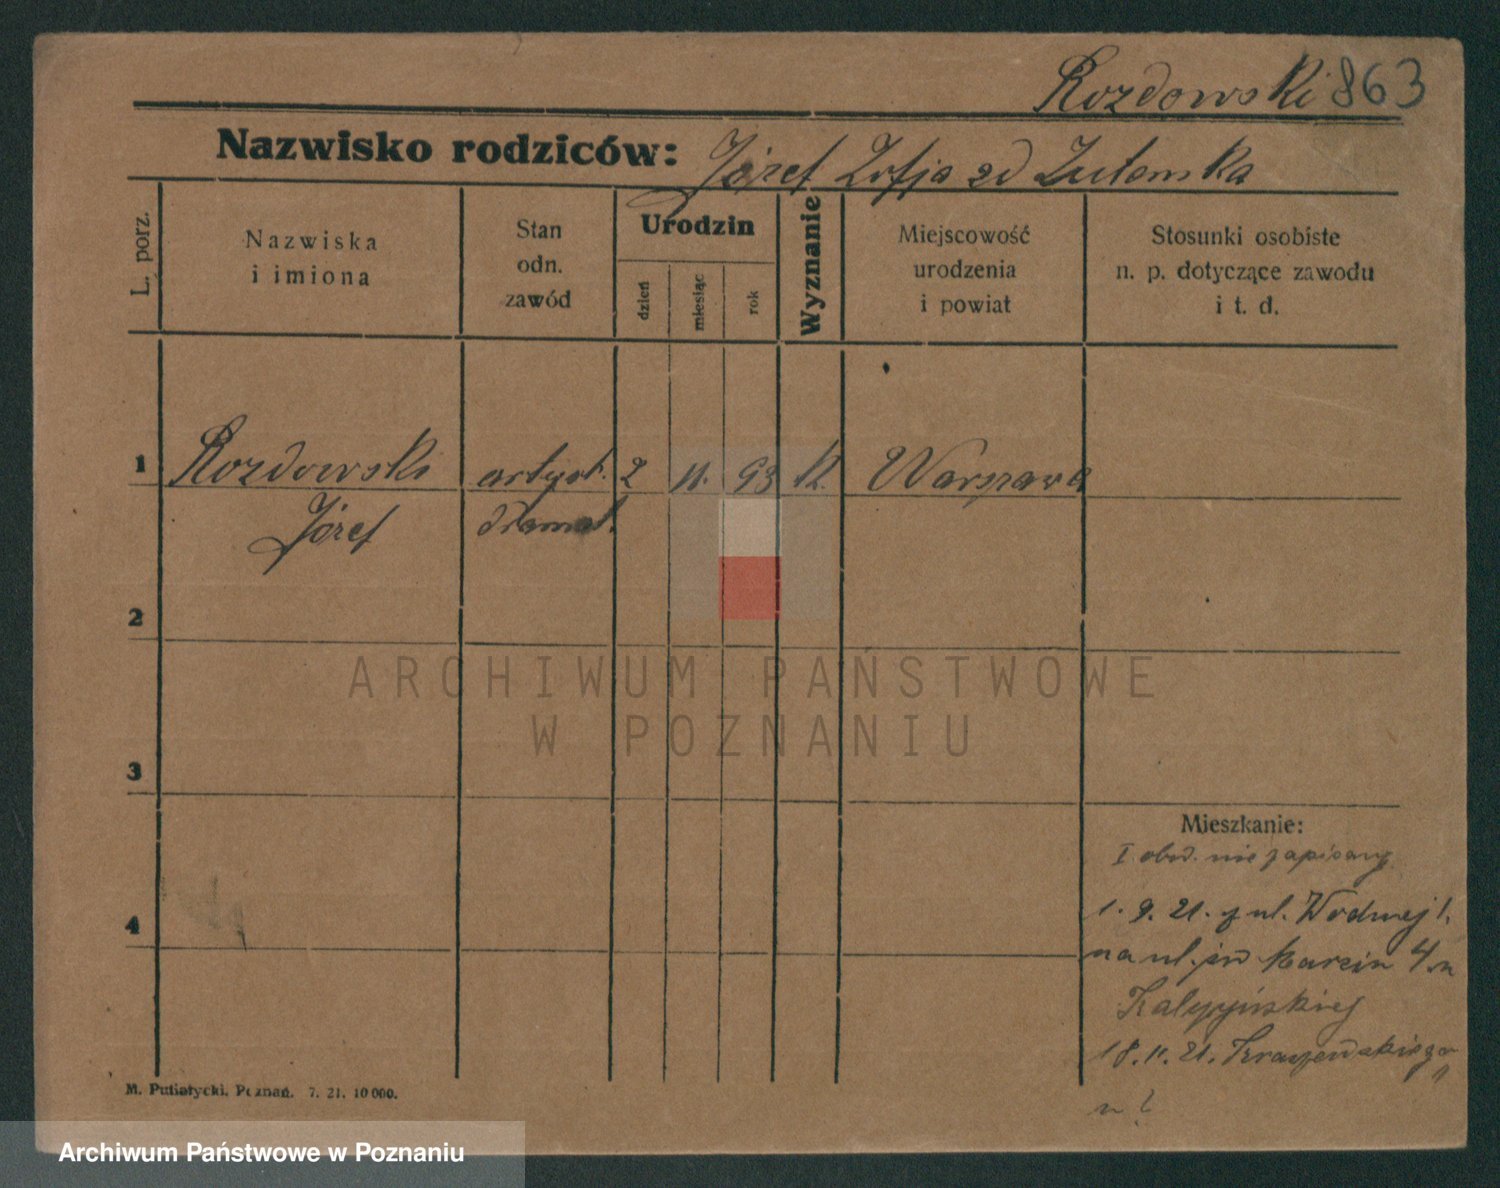 Rozdowski 863
Nazwisko rodziców: Józef Zofja
L. porz.
Nazwiska i imiona
Stan odn. zawód
Urodzin
dzień
miesiąc
rok
Wyznanie
Miejscowość urodzenia i powiat
Stosunki osobiste n. p. dotyczące zawodu i t. d.
1 Rozdowski artyst. 2 11. 93 k. Warszawa
Józef dramat.
2
3
4
ARCHIWUM PAŃSTWOWE
W POZNANIU
Mieszkanie:
I obw. nie zapisany
1. 9. 21. z ul. Wodnej 1.
na ul. św Marcin 4
18. 11. 21. Kraszewskiego
M. Putiatycki, Poznań. 7. 21. 10 000.
Archiwum Państwowe w Poznaniu